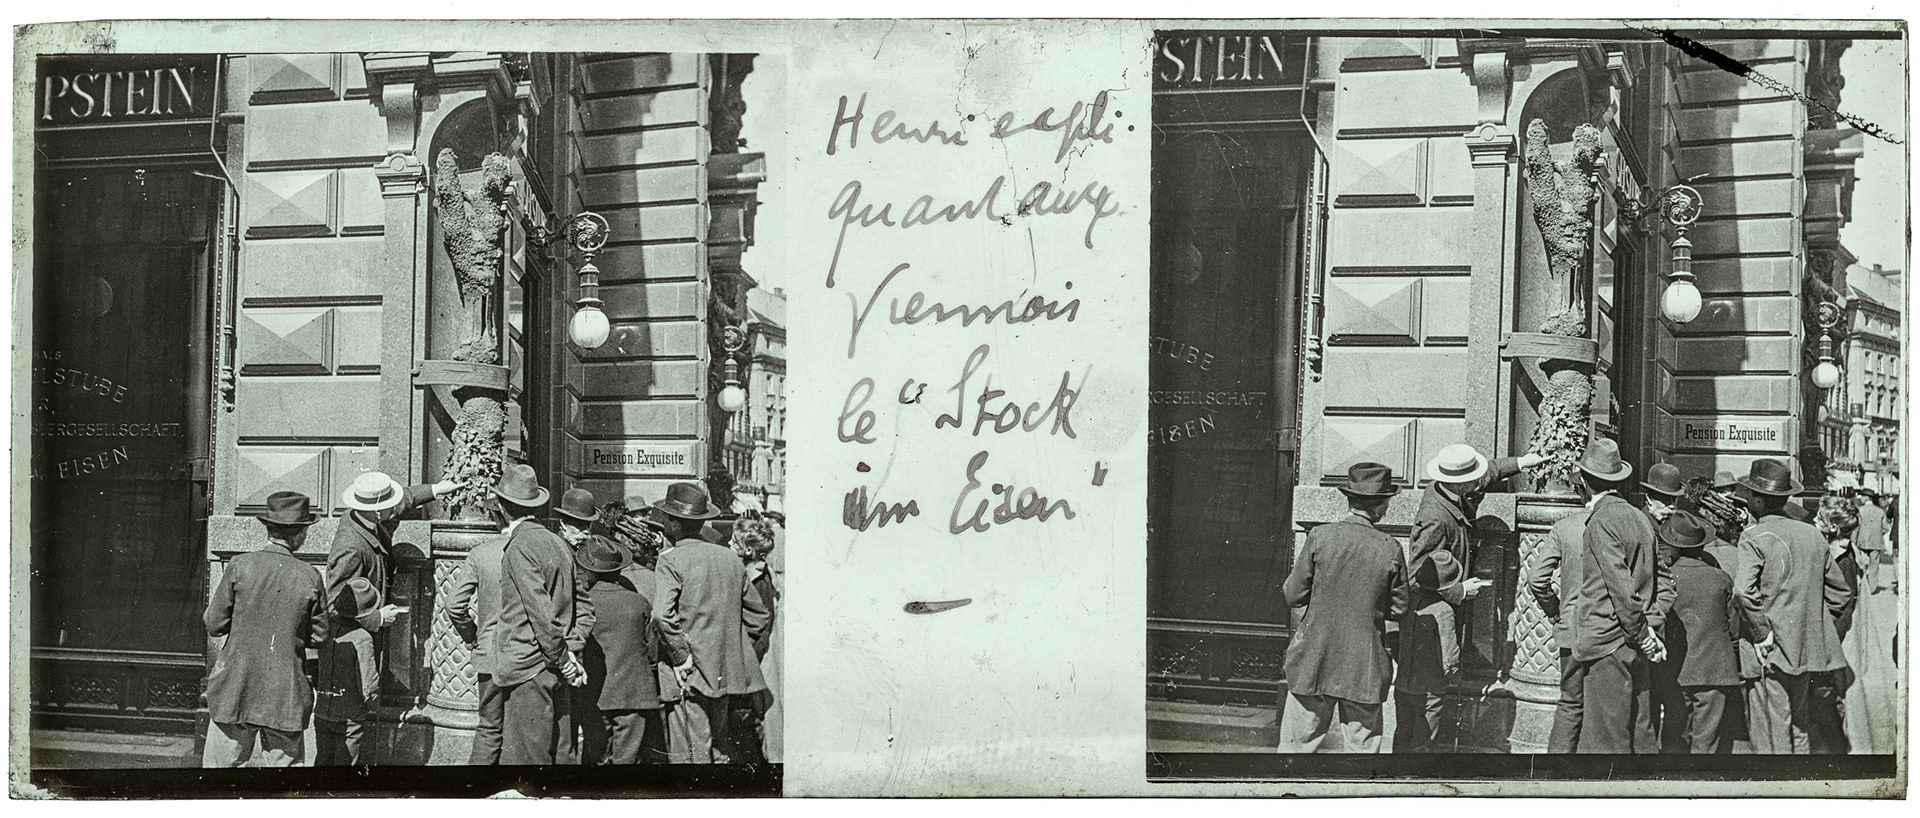 PSTEIN
ALS
LSTUBE
R.
ERGESELLSCHAFT
EISEN
Pension Exquisite
Henri expli-
quant aux
Viennois
le "Stock
im Eisen"
STEIN
STUBE
ERGESELLSCHAFT
EISEN
Pension Exquisite